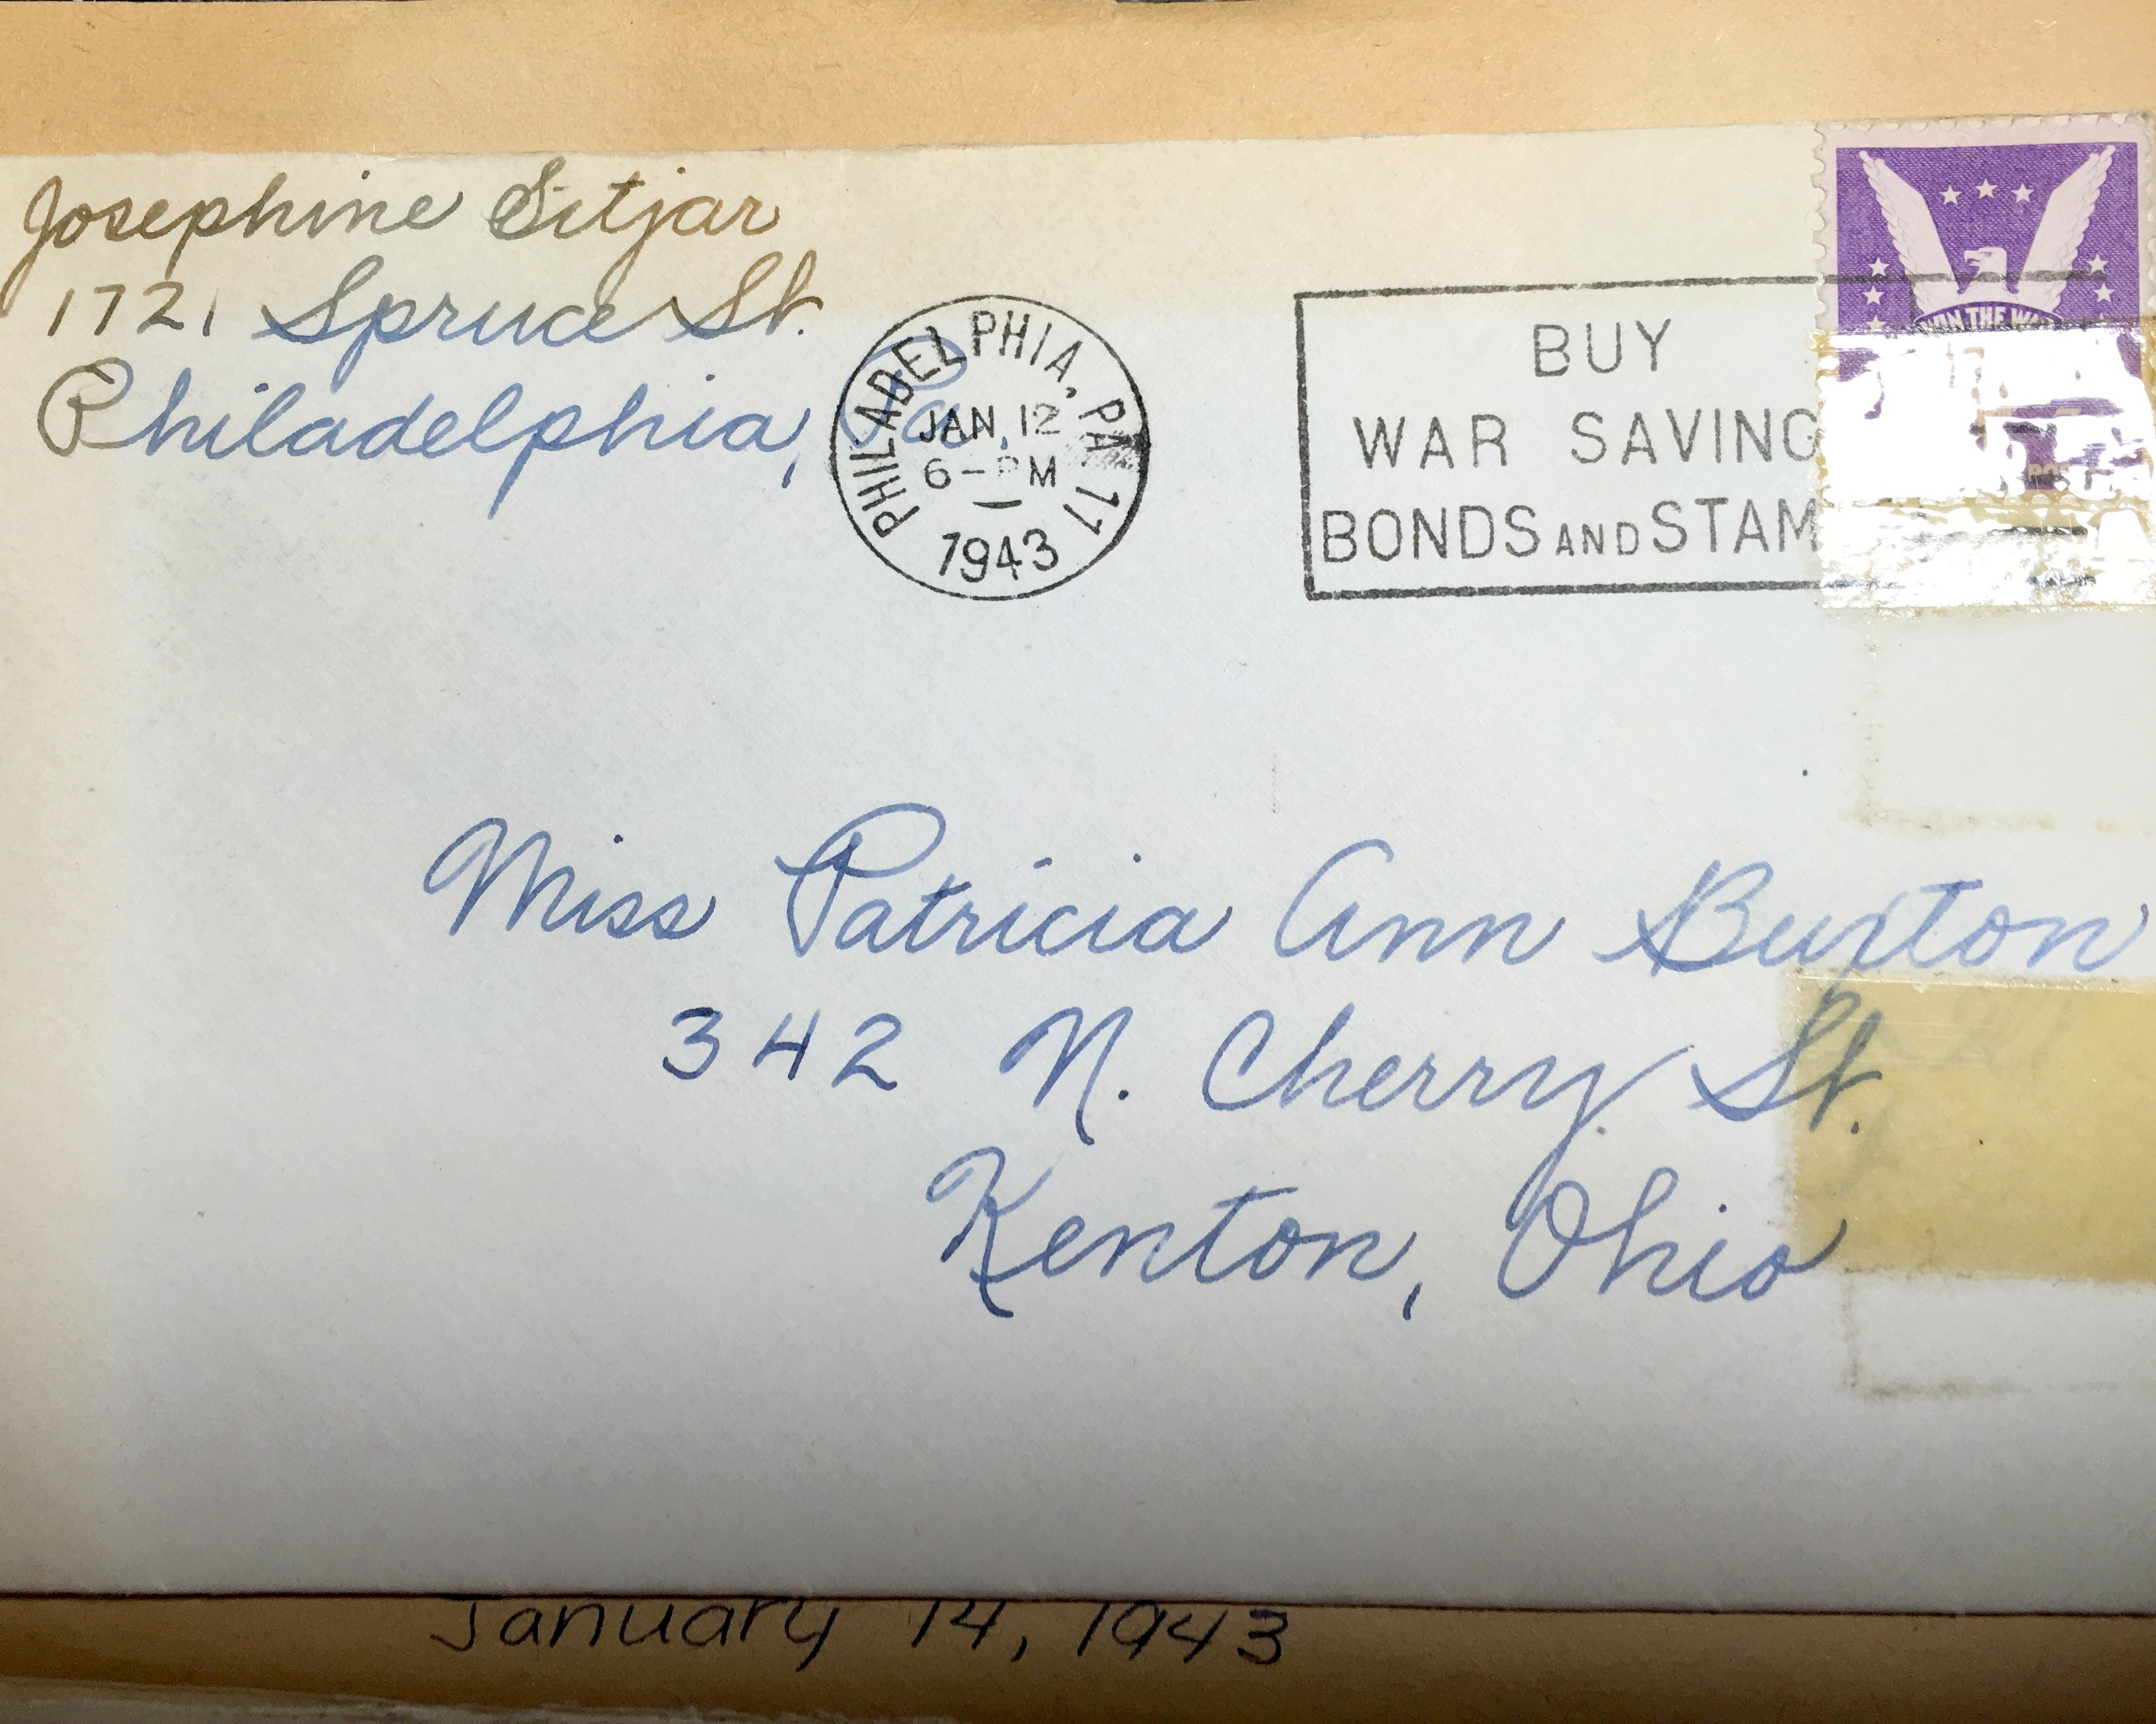 Josephine Sitjar
1721 Spruce St.
Philadelphia, Pa.
PHILADELPHIA, PA. 11
JAN 12
6-PM
1943
BUY
WAR SAVING
BONDS AND STAM
WIN THE WAR
Miss Patricia Ann Buxton
342 N. Cherry St.
Kenton, Ohio
January 14, 1943